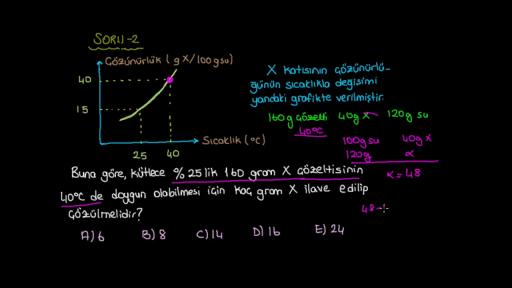 SORU-2
Çözünürlük (g X/100g su)
40
15
25
40
Sıcaklık (°C)
X katısının çözünürlü-
ğünün sıcaklıkla değişimi
yandaki grafikte verilmiştir.
160g çözelti 40g X 120g su
40°C
100g su 40g X
120g α
α = 48
Buna göre, kütlece %25lik 160 gram X çözeltisinin
40°C de doygun olabilmesi için kaç gram X ilave edilip
çözülmelidir?
48-
A) 6 B) 8 C) 14 D) 16 E) 24